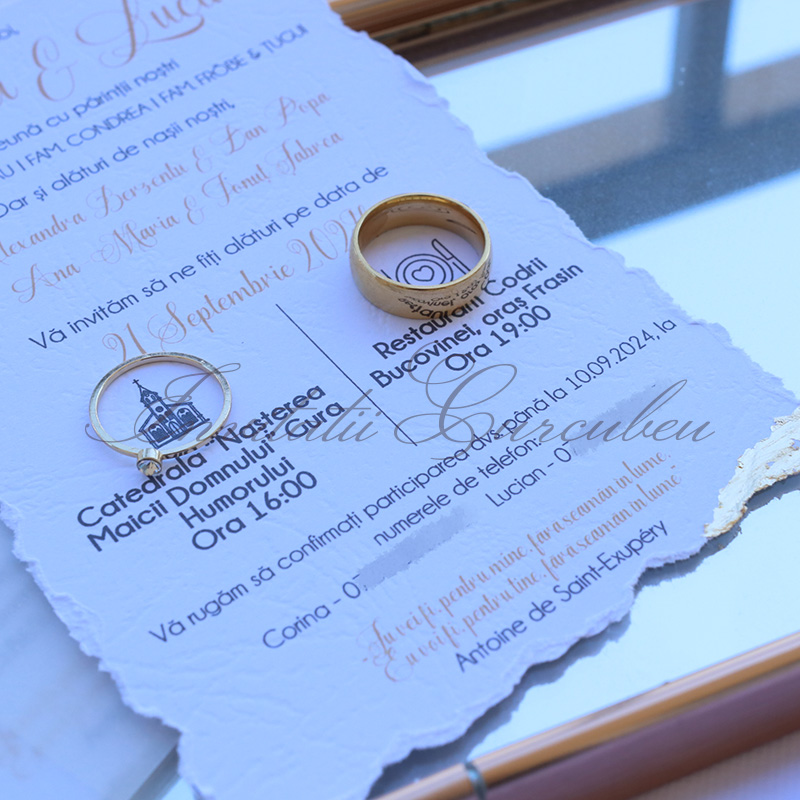 & Luci
eună cu părinții noștri
U I FAM. CONDREA I FAM. FRÖBE & TUGUI
Dar și alături de nașii noștri,
Alexandra Derzentu & Dan Popa
Ana Maria & Ionuț Iabrea
Vă invităm să ne fiți alături pe data de
21 Septembrie 2024
Restaurant Codrii
Bucovinei, oraș Frasin
Ora 19:00
Catedrala "Nașterea
Maicii Domnului" Gura
Humorului
Ora 16:00
Invitatii Curcubeu
Vă rugăm să confirmați participarea dvs. până la 10.09.2024, la
numerele de telefon:
Corina - 07
Lucian - 07
"Tu vei fi, pentru mine, fără seamăn în lume.
Eu voi fi, pentru tine, fără seamăn în lume"
Antoine de Saint-Exupéry